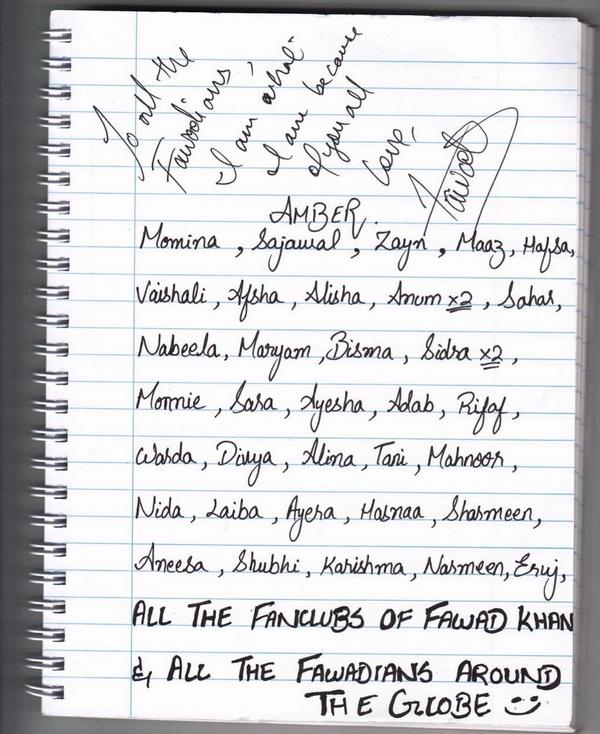 To all the
Fawadians,
"I am what
I am because
of you all
Love,
Fawad
AMBER.
Momina, Sajawal, Zayn, Maaz, Hafsa,
Vaishali, Afsha, Alisha, Anum x2, Sahar,
Nabeela, Maryam, Bisma, Sidra x2,
Monnie, Sara, Ayesha, Adab, Rifaf,
Warda, Divya, Alina, Tani, Mahnoor,
Nida, Laiba, Ayera, Hasnaa, Sharmeen,
Aneesa, Shubhi, Karishma, Narmeen, Eruj,
ALL THE FANCLUBS OF FAWAD KHAN
& ALL THE FAWADIANS AROUND
THE GLOBE